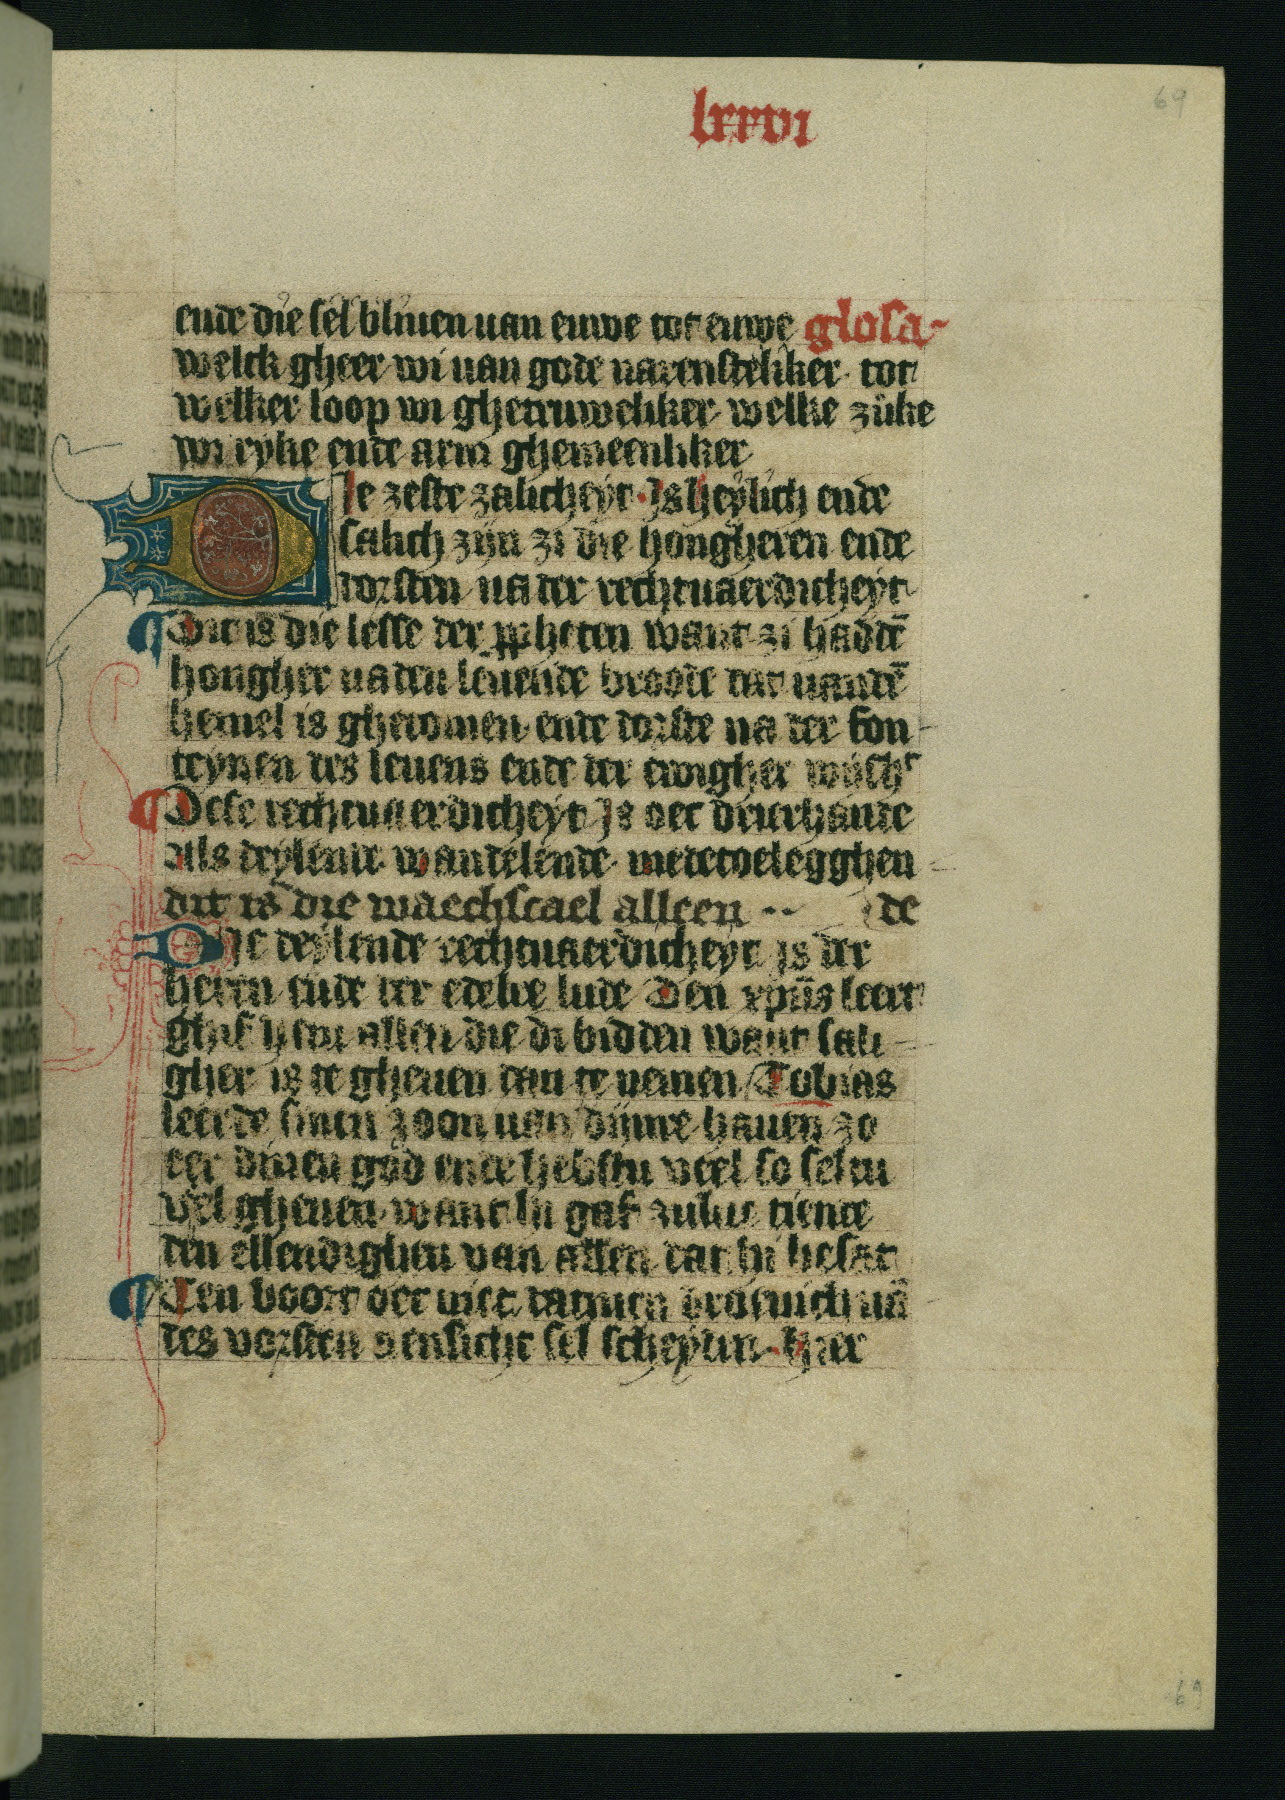 lxxvi
69
ende die sel bliuen uan euwe tot euwe glosa
welck gheer wi uan gode narensteliker tot
welker loop wi ghetruweliker welke zuke
wi ryke ende arm ghemeenliker
Die zeste zalicheyt Is heylich ende
salich zijn zi die hongheren ende
dorsten na der rechtuaerdicheyt
¶ Dit is die lesse der ppheten want zi haddē
hongher na den leuende broode dat uandē
hemel is ghecomen ende dorste na der fon
teynen des leuens ende der ewigher wijsh
¶ Dese rechtuaerdicheyt Is oec drierhande
als deylende wandelende medetoelegghen
dit is die waechscael alleen de
Die deylende rechtuaerdicheyt is der
heren ende der edelre lude Den xpūs leert
ghif hem allen die di bidden want sali
gher is te gheuen dan te nemen Tobias
leerde sinen zoon uan dijnre hauen zo
eer dinen god ende hebstu veel so seltu
vel gheuen want hi gaf zulue tiende
den ellendighen van allen dat hi besat
¶ Ten voort oec niet datmen
des vorsten aensicht sel scheyden hier
69